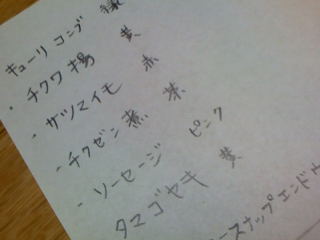 キューリ コンブ 緑
・チクワ揚 黄
・サツマイモ 赤
・チクゼン煮 茶
・ソーセージ ピンク
タマゴヤキ 黄
ースナップエンドウ